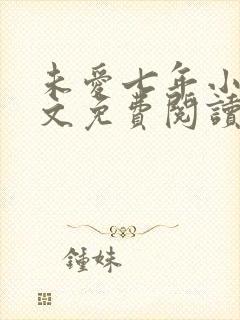 未愛七年小
文免費閱讀
鍾妹